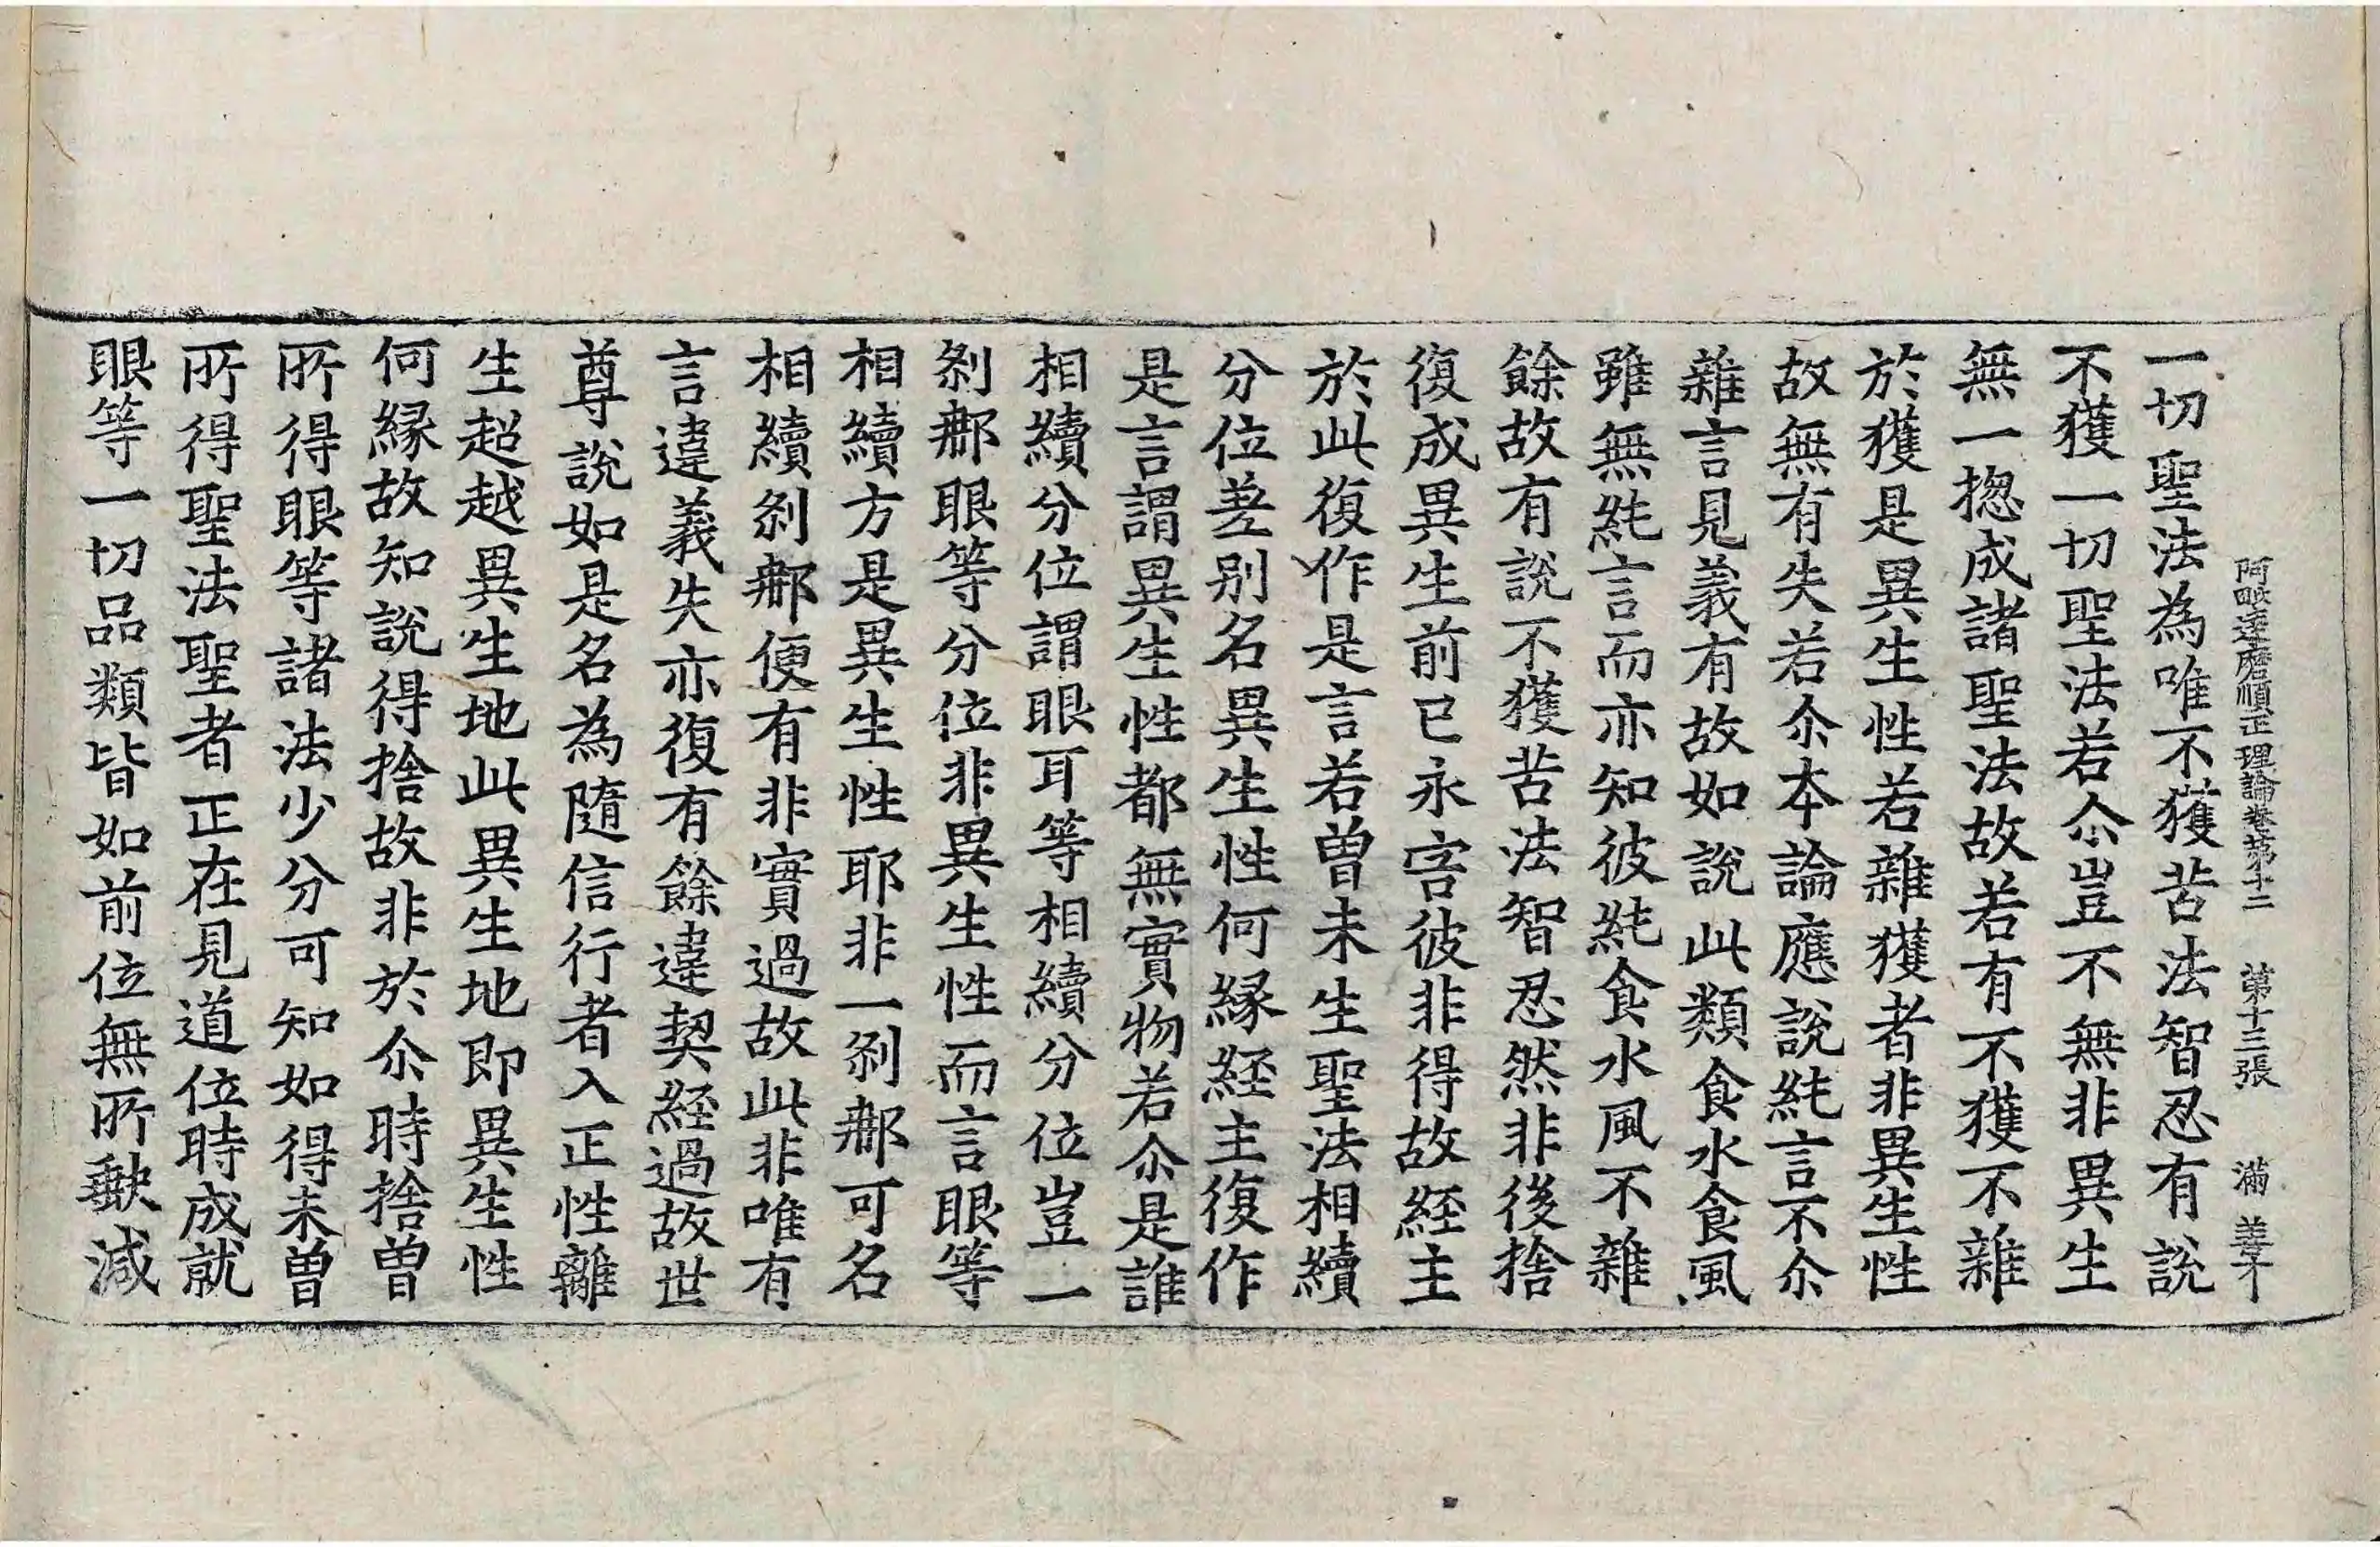 阿毗達磨順正理論卷第十二　第十三張　滿
一切聖法為唯不獲苦法智忍有說
不獲一切聖法若尒豈不無非異生
無一揔成諸聖法故若有不獲不雜
於獲是異生性若雜獲者非異生性
故無有失若尒本論應說純言不尒
雜言見義有故如說此類食水食風
雖無純言而亦知彼純食水風不雜
餘故有說不獲苦法智忍然非後捨
復成異生前已永害彼非得故経主
於此復作是言若曽未生聖法相續
分位差別名異生性何縁経主復作
是言謂異生性都無實物若尒是誰
相續分位謂眼耳等相續分位豈一
剎那眼等分位非異生性而言眼等
相續方是異生性耶非一剎那可名
相續剎那便有非實過故此非唯有
言違義失亦復有餘違契経過故世
尊說如是名為隨信行者入正性離
生超越異生地此異生地即異生性
何縁故知說得捨故非於尒時捨曽
所得眼等諸法少分可知如得未曽
所得聖法聖者正在見道位時成就
眼等一切品類皆如前位無所缺減